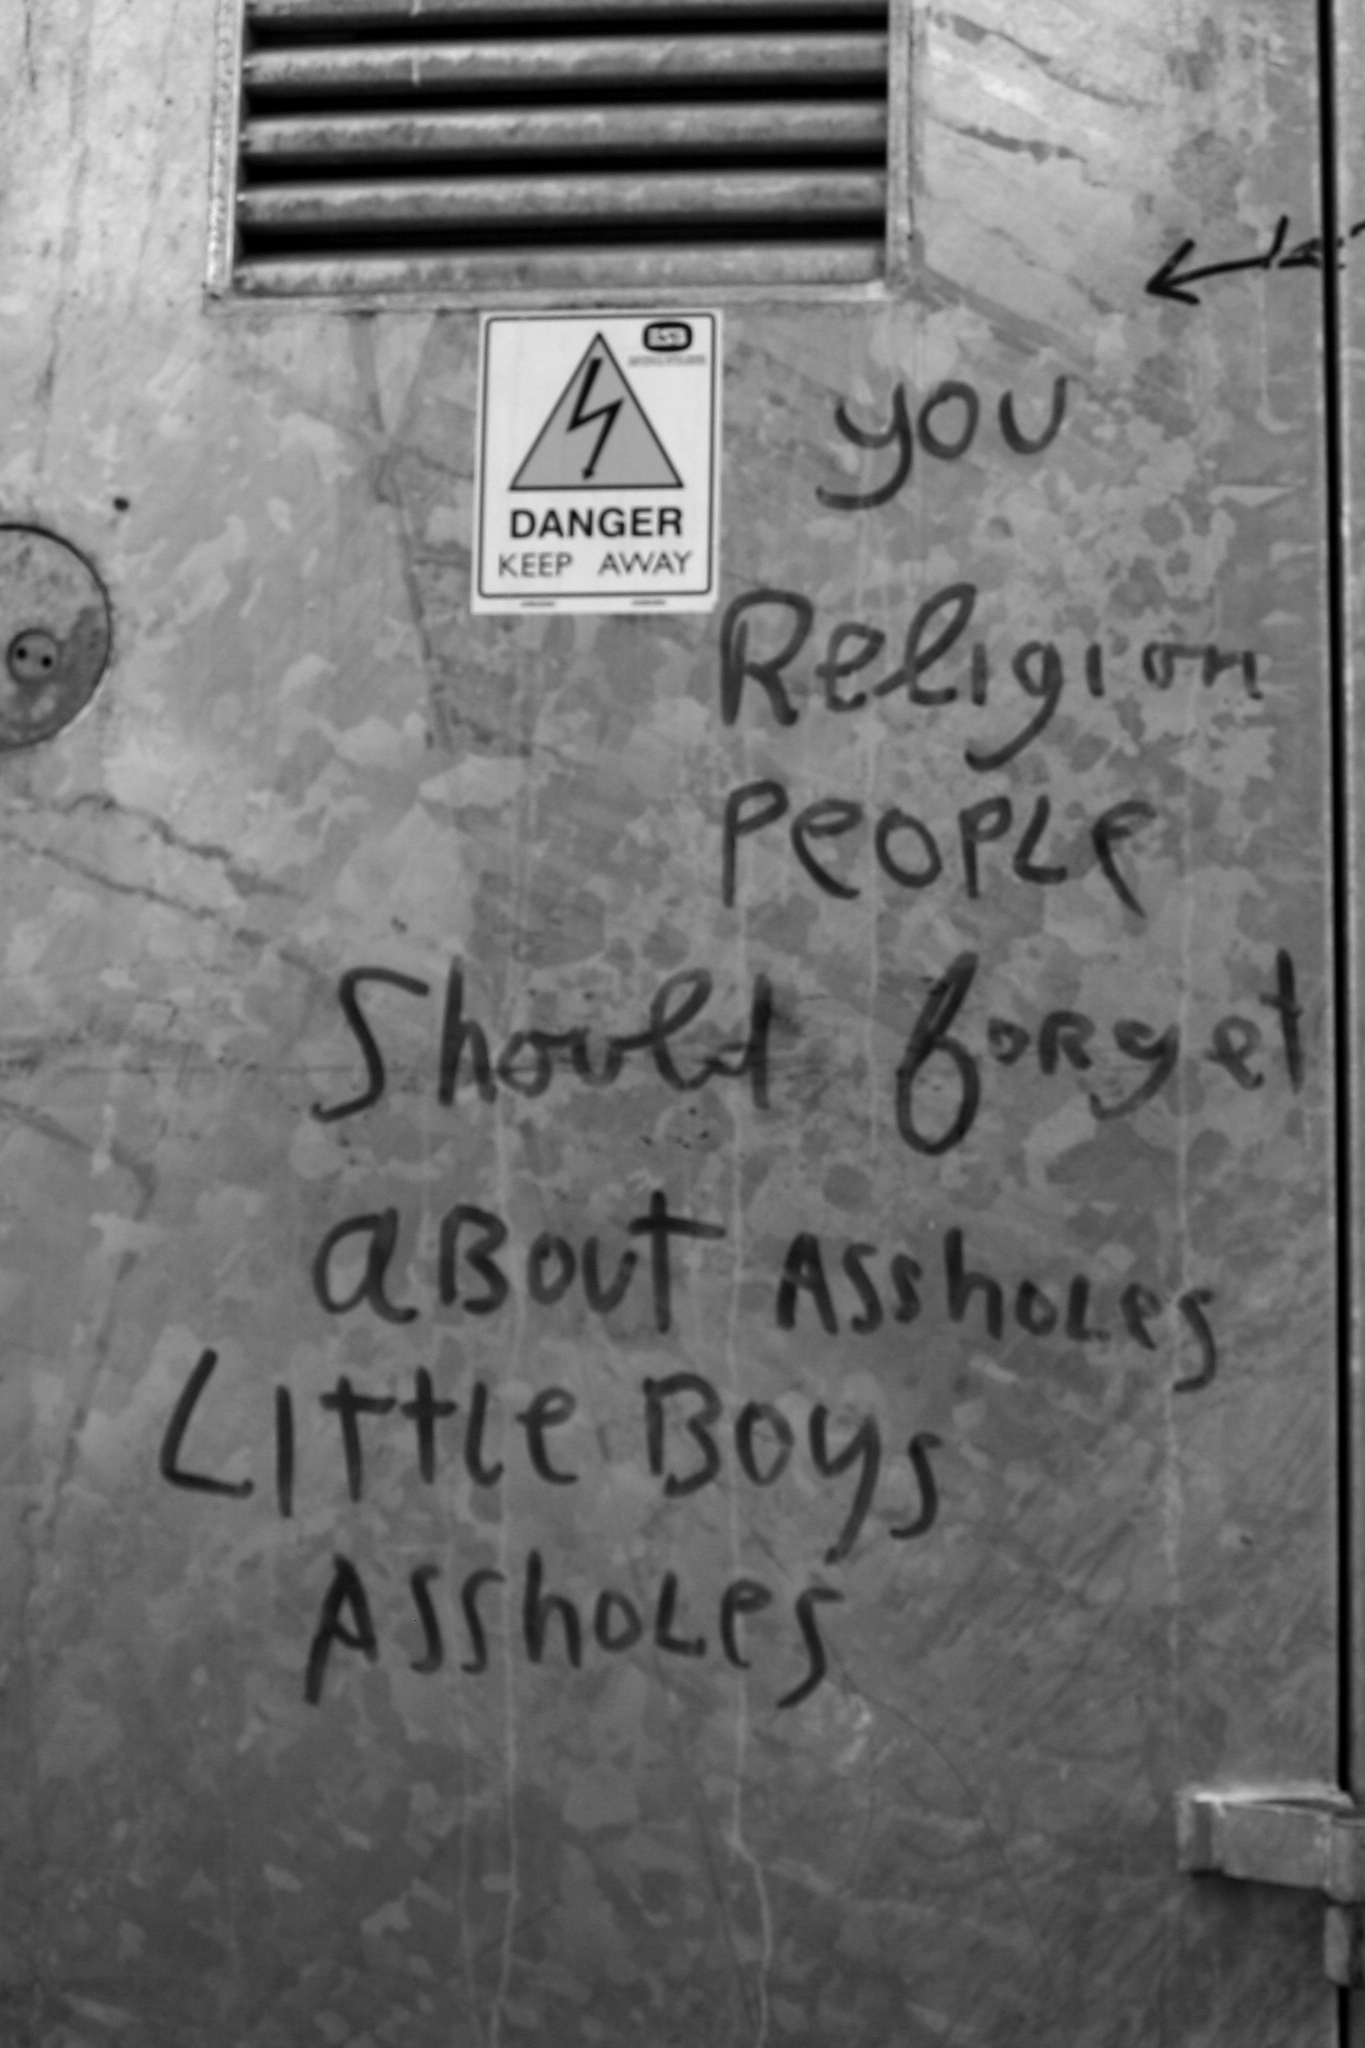 DANGER
KEEP AWAY
you
Religion
PEOPLE
Should forget
aBout AssholeS
LittLe BoyS
AssholeS